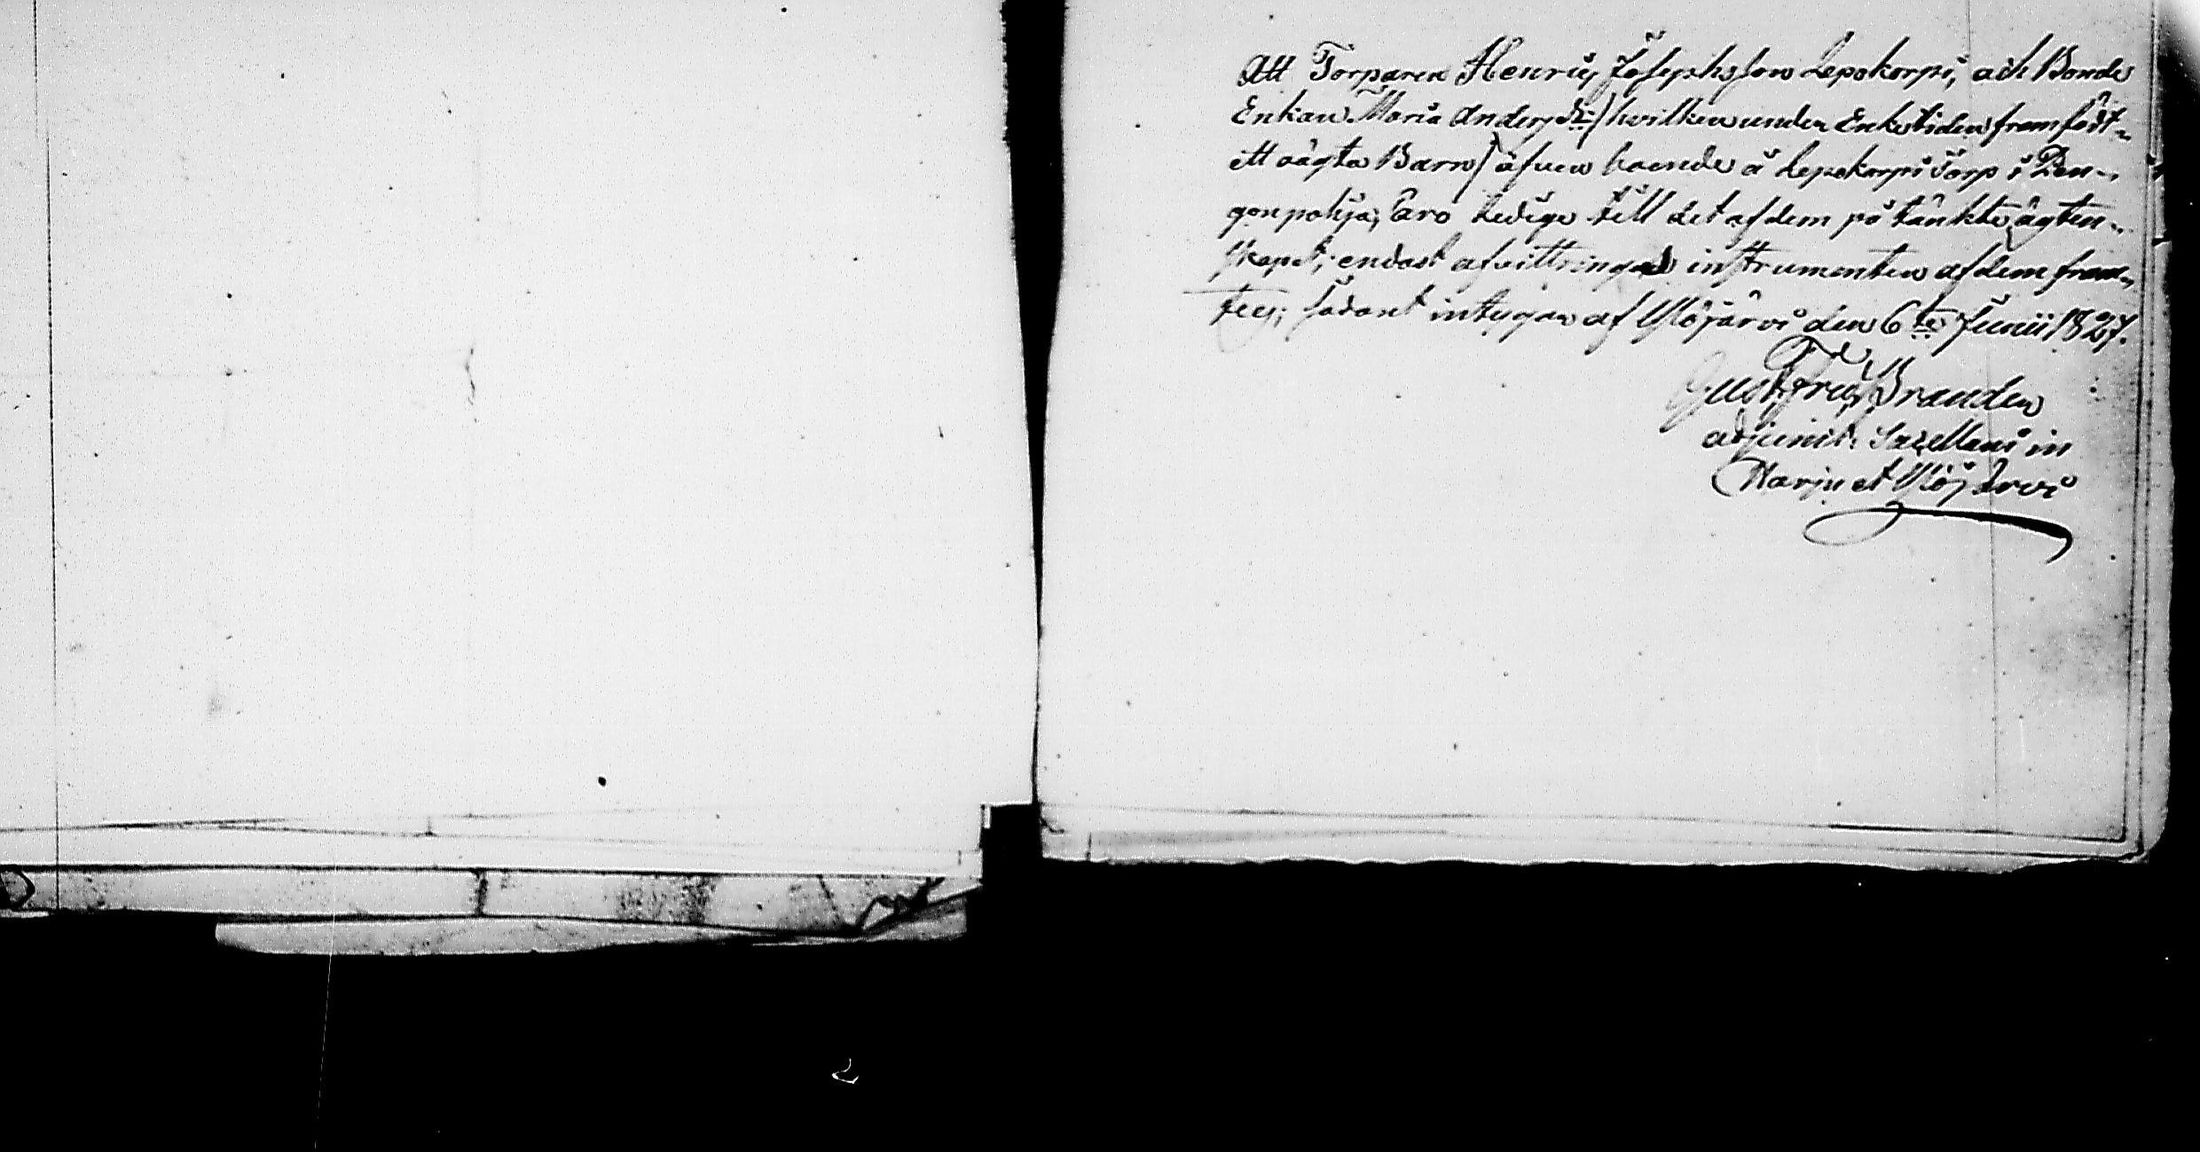 Att Torparen Henric Josephsson Lepokorpi, och Bonde
Enkan Maria Andersdr /:hvilken under Enketiden framfödt
ett oägta Barn:/ äfven boende å Lepokorpi Torp i Pen-
gonpohja, äro Ledige till det af dem på tänkte ägten-
skapet; endast afvittrings instrumenten af dem fram-
tees; sådant intygar af Ylöjärvi den 6te Junii 1827.
Gust: Fru: Branden
adjunct: Sacellani in
Harju et Ylöjärvi